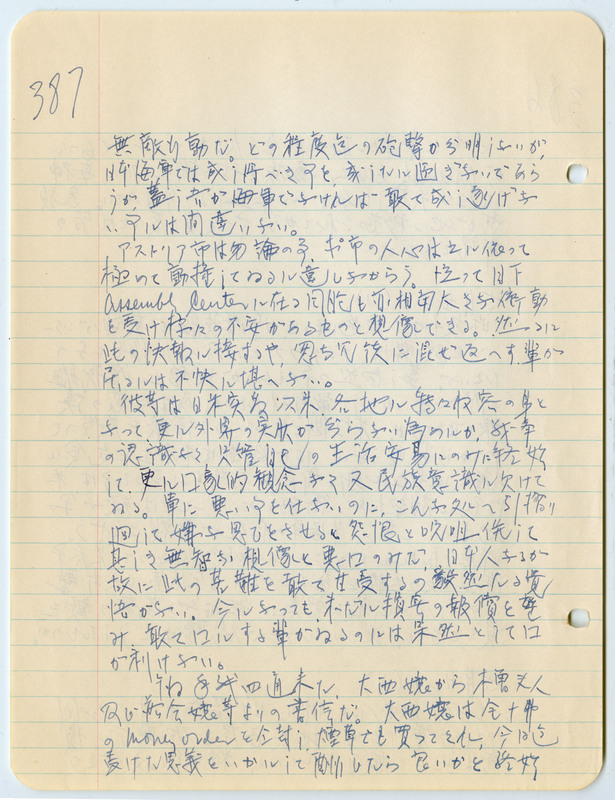 387
無敵的行動だ。どの程度迄の砲撃か分明しないが、
日本海軍では成し得べき事を、成したに過ぎないであら
うが、蓋し者が海軍でなければ敢て成し遂げ
い事は間違いない。
アストリア市は勿論の事、ポ市の人心は之に依って
極めて動揺してゐるに違いなからう。従って目下
Assembly Centerに在る同胞も亦相当大きな衝動
を受け様々の不安があるものと想像できる。然るに
此の快報に接するや、
居るは不快に堪へない。
彼等は日米突入以来、各地に収容の身と
なって更に外界の実状が分らない為めにか、戦争
の認識なく、只管自己の生活安易にのみに終始
して、更に国家的観念なく又民族意識に欠けて
ゐる。単に悪い事を仕ないのに、こんな処へ引摺り
廻して嫌な思ひをさせると怨恨と呪咀
甚しき無智な想像と悪口のみだ。日本人なるが
故に此の苦難を敢て甘受するの毅然たる覚
悟がない。今になっても、未だに損害の報償を
み、敢て口にする輩がゐるのには呆然として口
が利けない。
四通来た。大西嬢から木曽夫人
及び 嬢等よりの書信だ。大西嬢は金十弗
のmoney orderを同封し、煙草でも買ってくれ、今日迄
受けた恩義をいかにして酬いたら良いかと終始